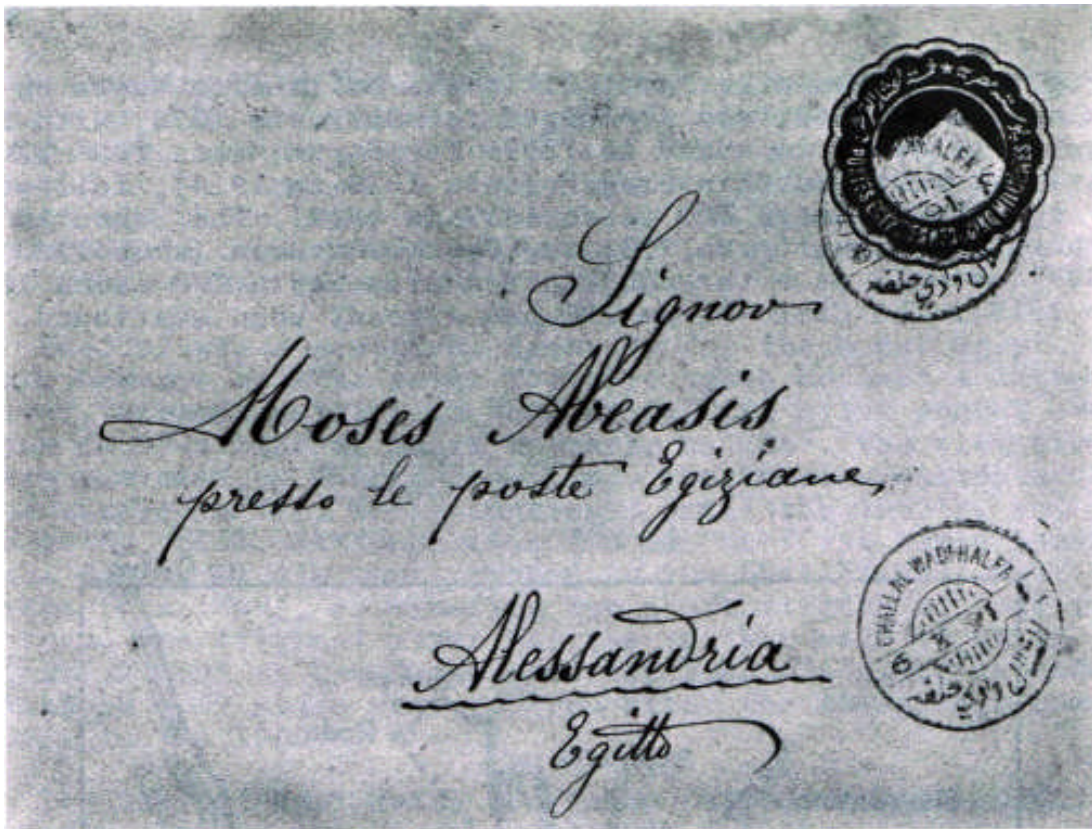 Signor
Moses Abeasis
presso le poste Egiziane
Alessandria
Egitto
CHALLAL WADI-HALFA
الشلال وادي حلفه